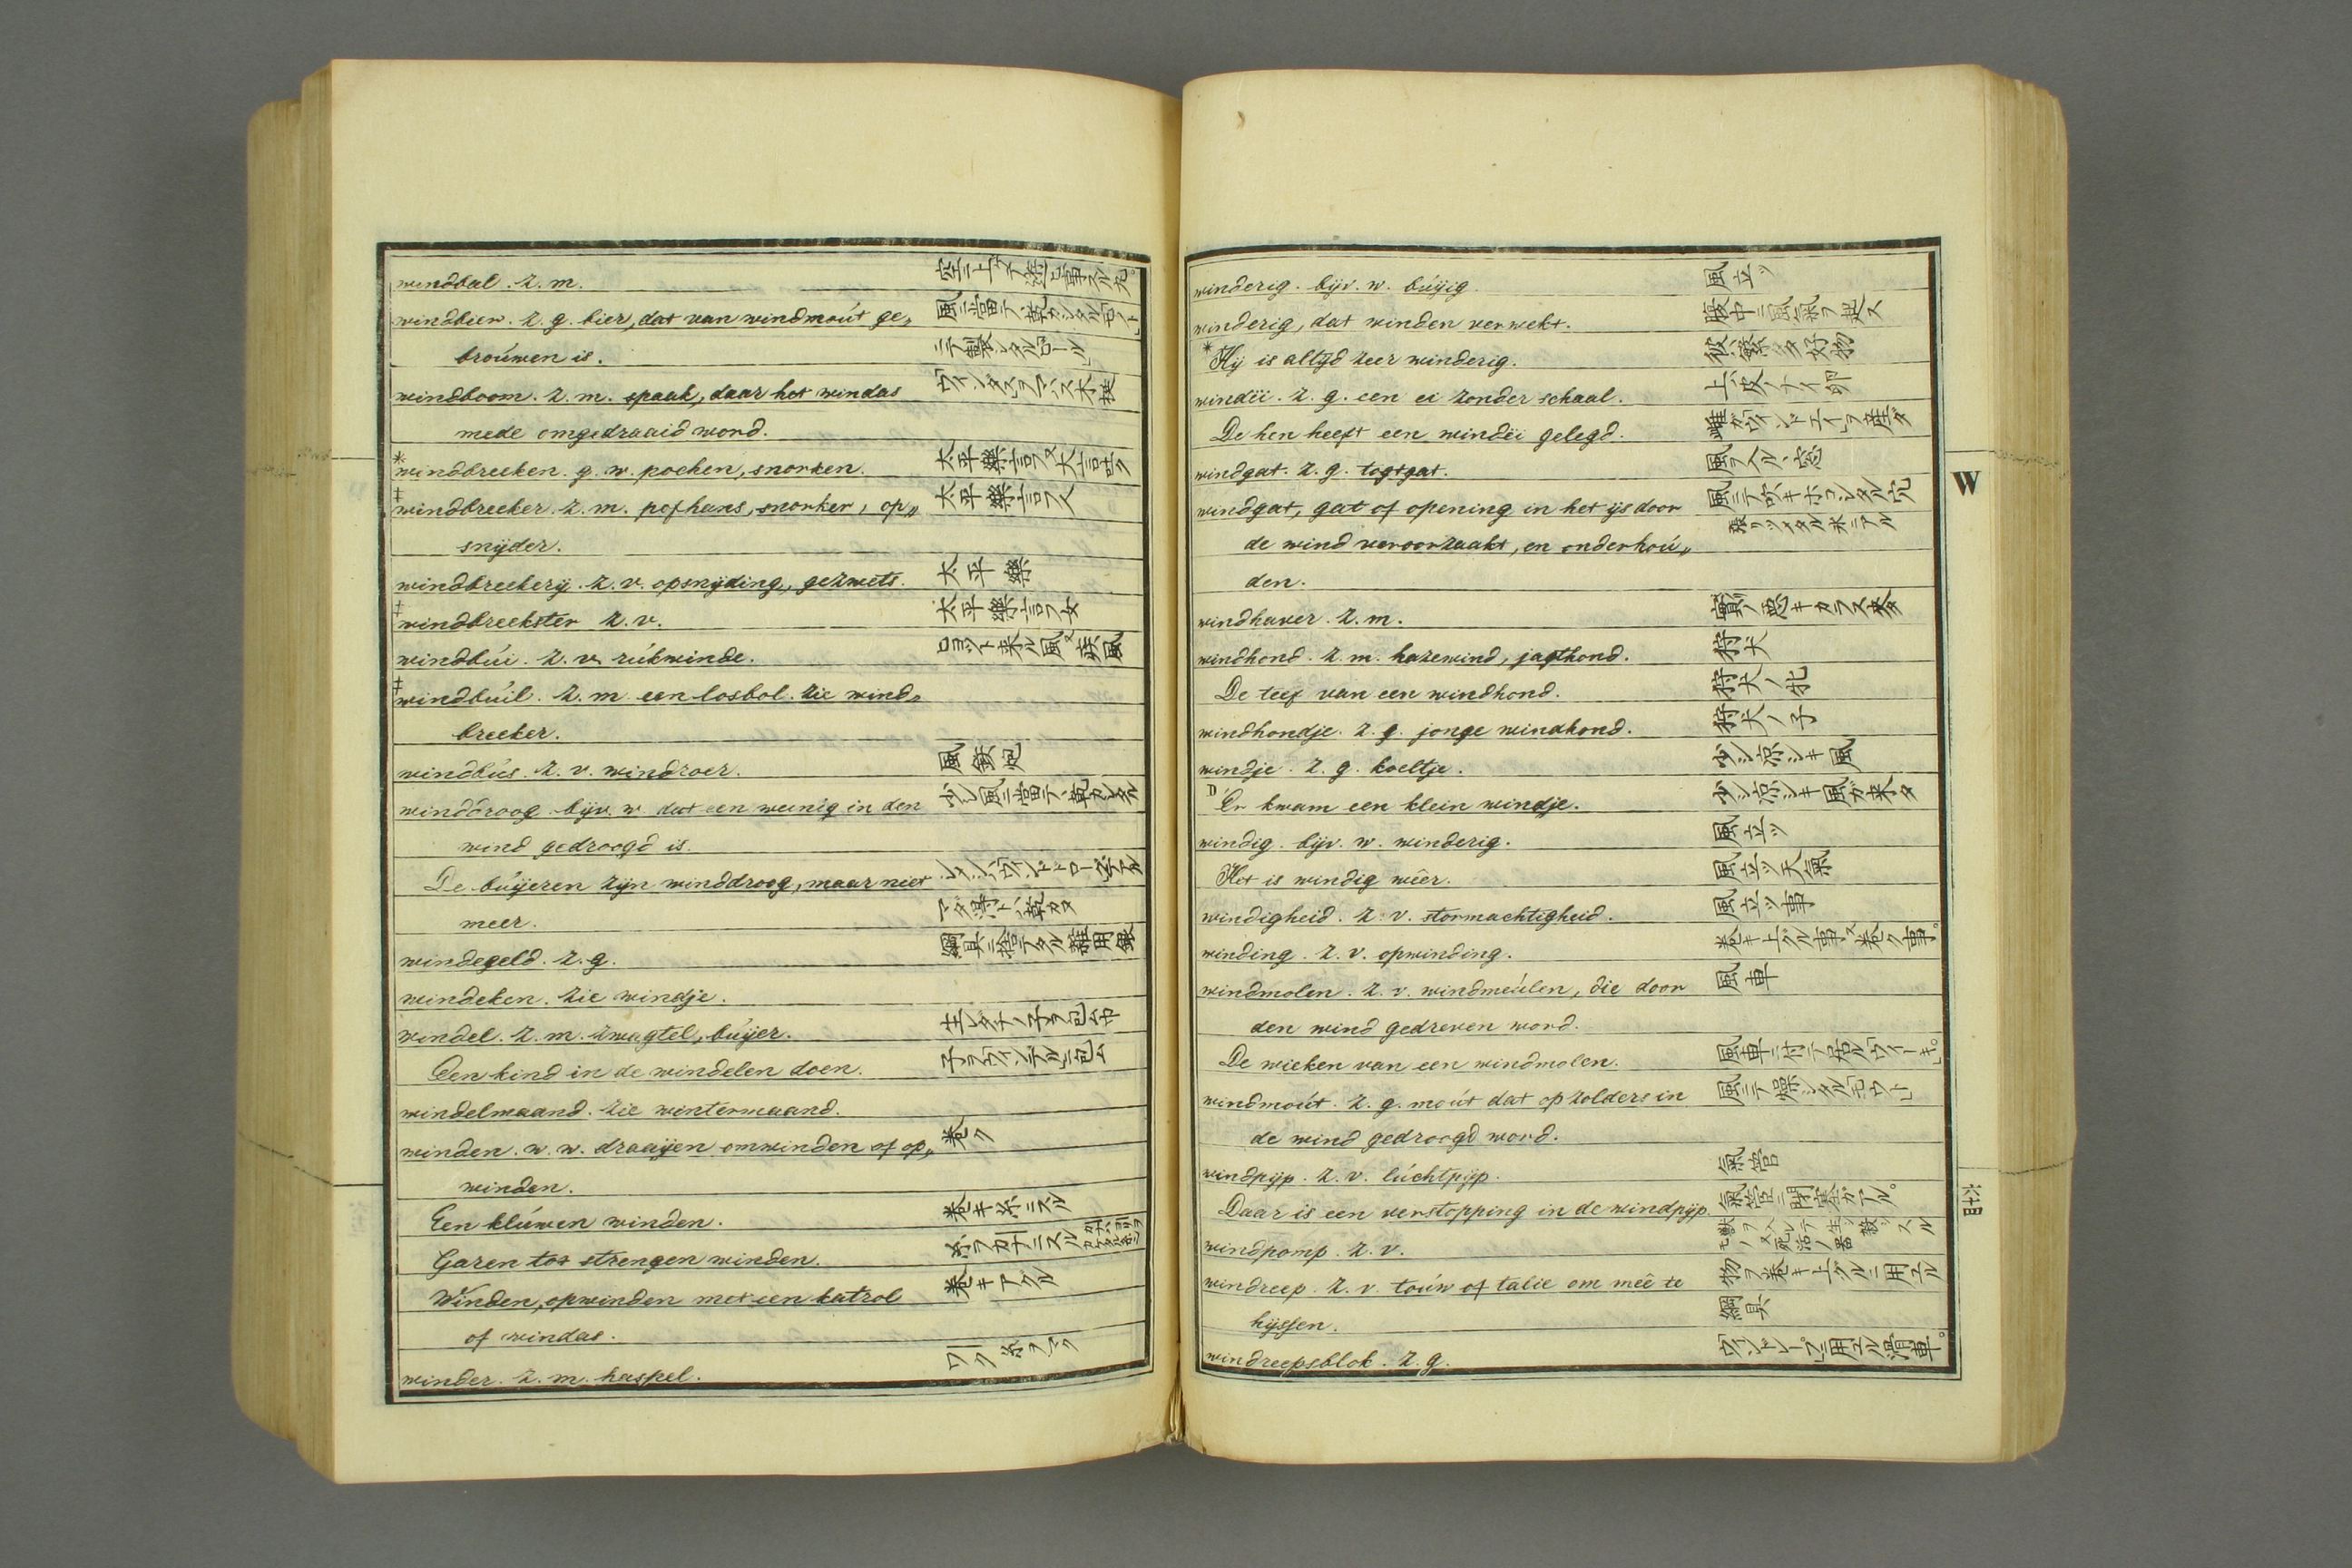 windbal. z. m.
windbier. z. g. bier, dat van windmoút ge„
broúwen is.
windboom. z. m. spaak, daar het windas
mede omgedraaid word.
*windbreeken. g. w. pochen, snorken. 太平樂言フ又大言吐ク
‡windbreeker. z. m. pofhans, snorker, op„ 太平樂言フ人
snÿder.
windbreekerÿ. z. v. opsnÿding, gezwets. 太平樂
‡windbreekster z. v. 太平樂言フ女
windbúi. z. v. rúkwinde.
‡windbúil. z. m een losbol. zie wind„
breeker.
windbús. z. v. windroer. 風鉄炮
winddroog. bÿv. w. dat een weinig in den 少シ風ニ當テ乾カシタル
wind gedroogd is.
De búÿeren zÿn winddroog, maar niet
meer.
windegeld. z. g.
windeken. zie windje.
windel. z. m. zwagtel, búÿer.
Een kind in de windelen doen.
windelmaand. zie wintermaand.
winden. w. w. draaÿen omwinden of op„ 巻ク
winden.
Een klúwen winden.
Garen tot strengen winden.
Winden, opwinden met een katrol 巻キアグル
of windas.
winder. z. m. haspel.
winderig. bÿv. w. búÿig. 風立ツ
winderig, dat winden verwekt. 腹中ニ風氣ヲ起ス
*Hÿ is altÿd zeer winderig.
windëi. z. g. een ei zonder schaal. 上皮ノナイ卵
De hen heeft een windëi gelegd.
windgat. z. g. togtgat. 風ヲ入ル丶窓
windgat, gat of opening in het ÿs door
de wind veroorzaakt, en onderhoú„
den.
windhaver. z. m.
windhond. z. m. hazewind, jagthond. 狩犬
De teef van een windhond. 狩犬ノ牝
windhondje. z. g. jonge windhond. 狩犬ノ子
windje. z. g. koeltje. 少シ凉シキ風
D Er kwam een klein windje. 少シ凉シキ風ガ来タ
windig. bÿv. w. winderig. 風立ツ
Het is windig wêer. 風立ツ天氣
windigheid. z. v. stormachtigheid. 風立ツ事
winding. z. v. opwinding. 巻キ上グル事又巻ク事。
windmolen. z. v. windmeúlen, die door 風車
den wind gedreven word.
De wieken van een windmolen.
windmoút. z. g. moút dat op zolders in
de wind gedroogd word.
windpÿp. z. v. lúchtpÿp. 氣管
Daar is een verstopping in de windpÿp. 氣管ニ閉塞ガアル。
windpomp. z. v.
windreep. z. v. toúw of talie om mêe te 物ヲ巻キ上グルニ用ユル
hÿssen. 綱具
windreepsblok. z. g.
W